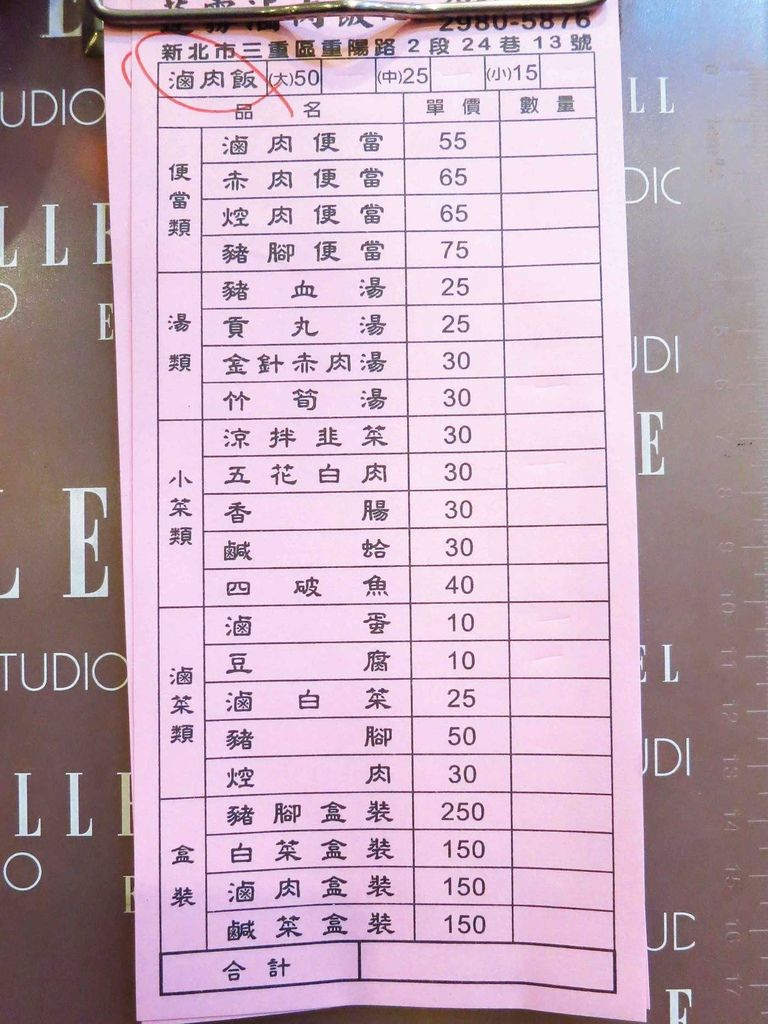 滷肉飯
2980-5876
新北市三重區重陽路2段24巷13號
滷肉飯 (大)50 (中)25 (小)15
品名 單價 數量
便當類
滷肉便當 55
赤肉便當 65
焢肉便當 65
豬腳便當 75
湯類
豬血湯 25
貢丸湯 25
金針赤肉湯 30
竹筍湯 30
小菜類
涼拌韭菜 30
五花白肉 30
香腸 30
鹹蛤 30
四破魚 40
滷菜類
滷蛋 10
豆腐 10
滷白菜 25
豬腳 50
焢肉 30
盒裝
豬腳盒裝 250
白菜盒裝 150
滷肉盒裝 150
鹹菜盒裝 150
合計